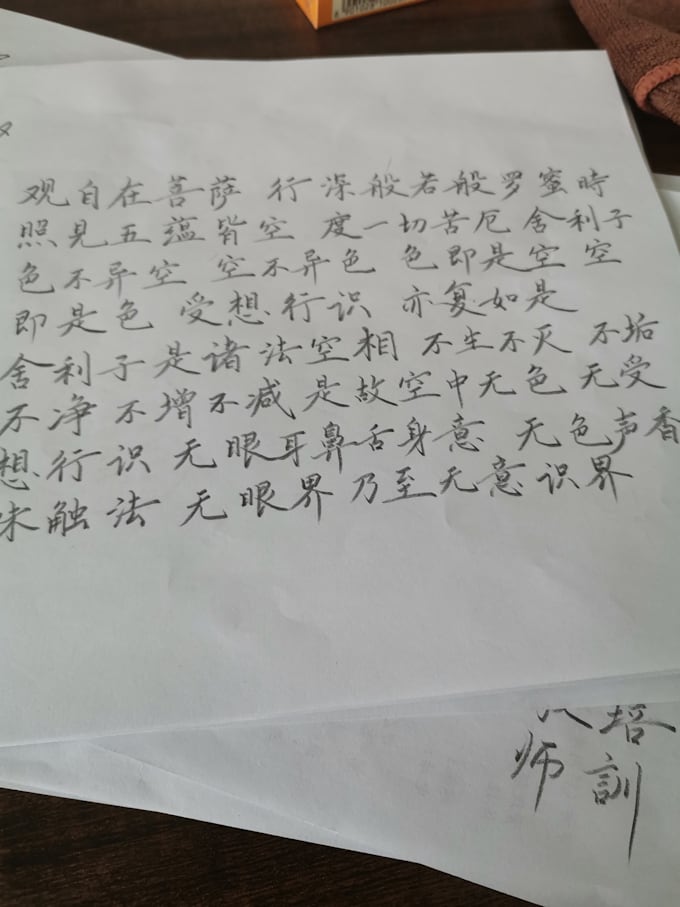 观自在菩萨 行深般若般罗蜜時
照見五蕴皆空 度一切苦厄 舍利子
色不异空 空不异色 色即是空 空
即是色 受想行识 亦复如是
舍利子是诸法空相 不生不灭 不垢
不净 不增不减 是故空中无色 无受
想行识 无眼耳鼻舌身意 无色声香
味触法 无眼界 乃至无意识界
培
师 訓